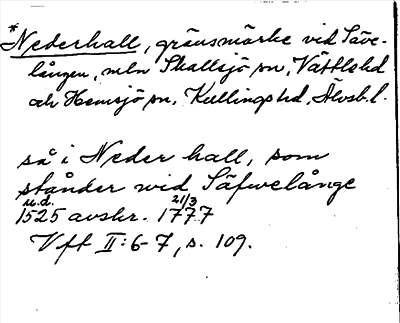 *Nederhall, gränsmärke vid Säve-
lången, mln Skallsjö sn, Vättlehd
och Hemsjö sn, Kullings hd, Älvsb.l.
så i Neder hall, som
stånder wid Säfwelånge
u.d. 21/3
1525 avskr. 1777
Vft II:6-7, s. 109.